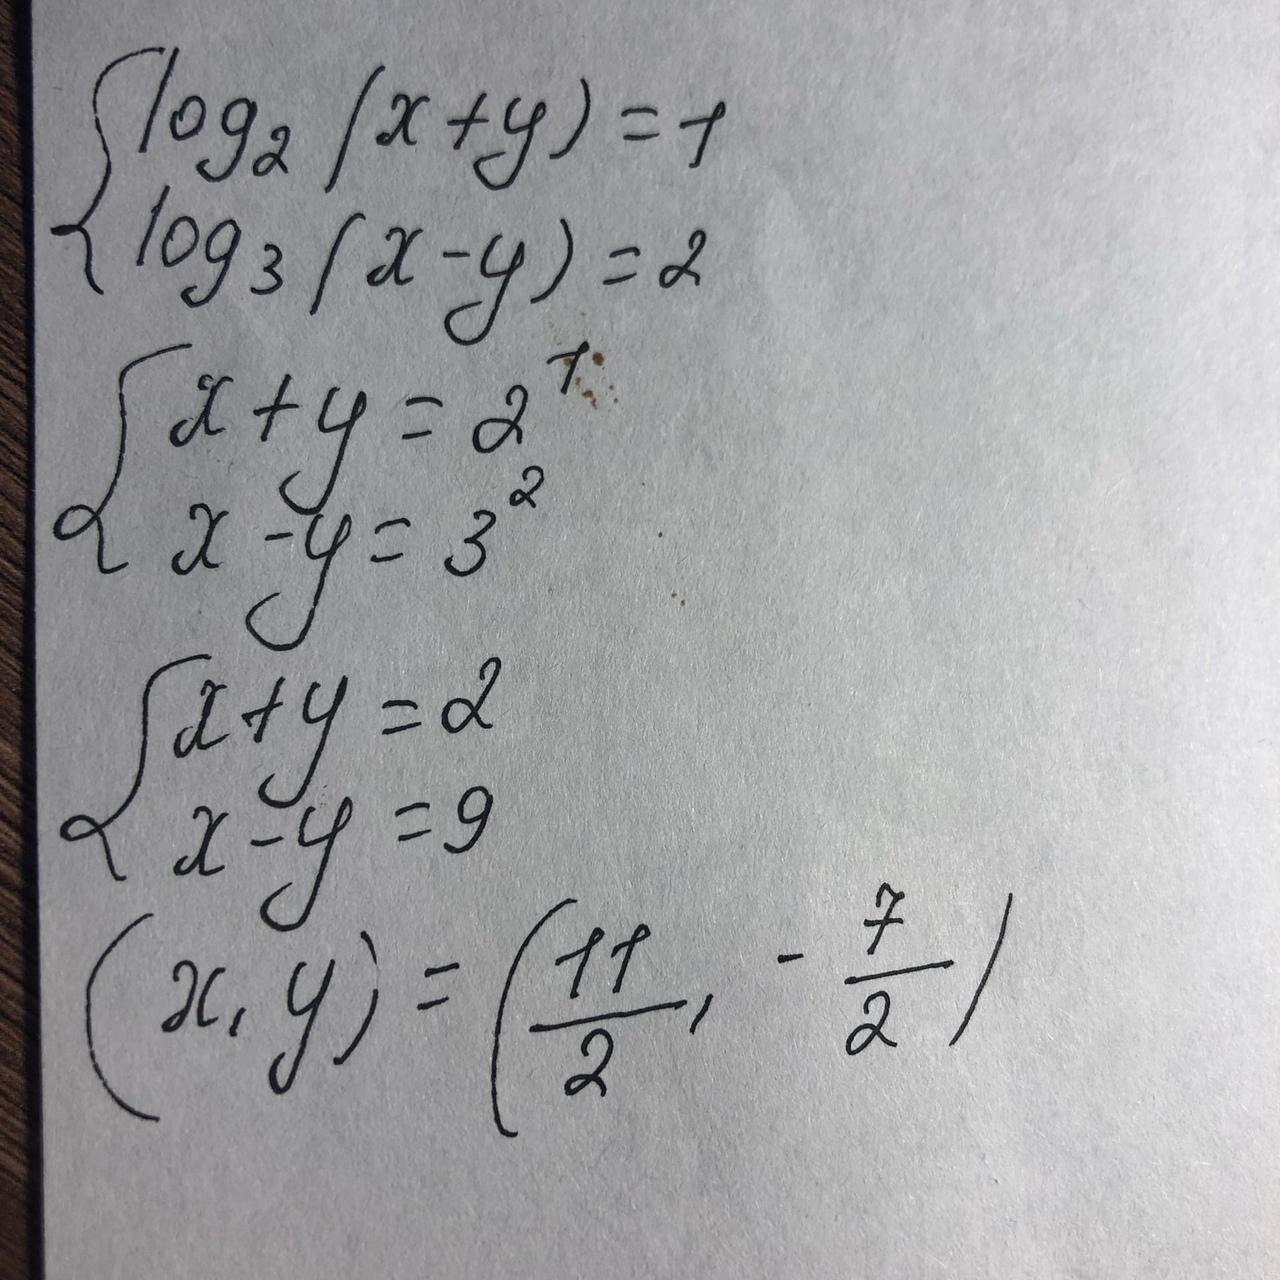 log₂(x+y)=1
log₃(x-y)=2
x+y=2¹
x-y=3²
x+y=2
x-y=9
(x, y)=(11/2, -7/2)